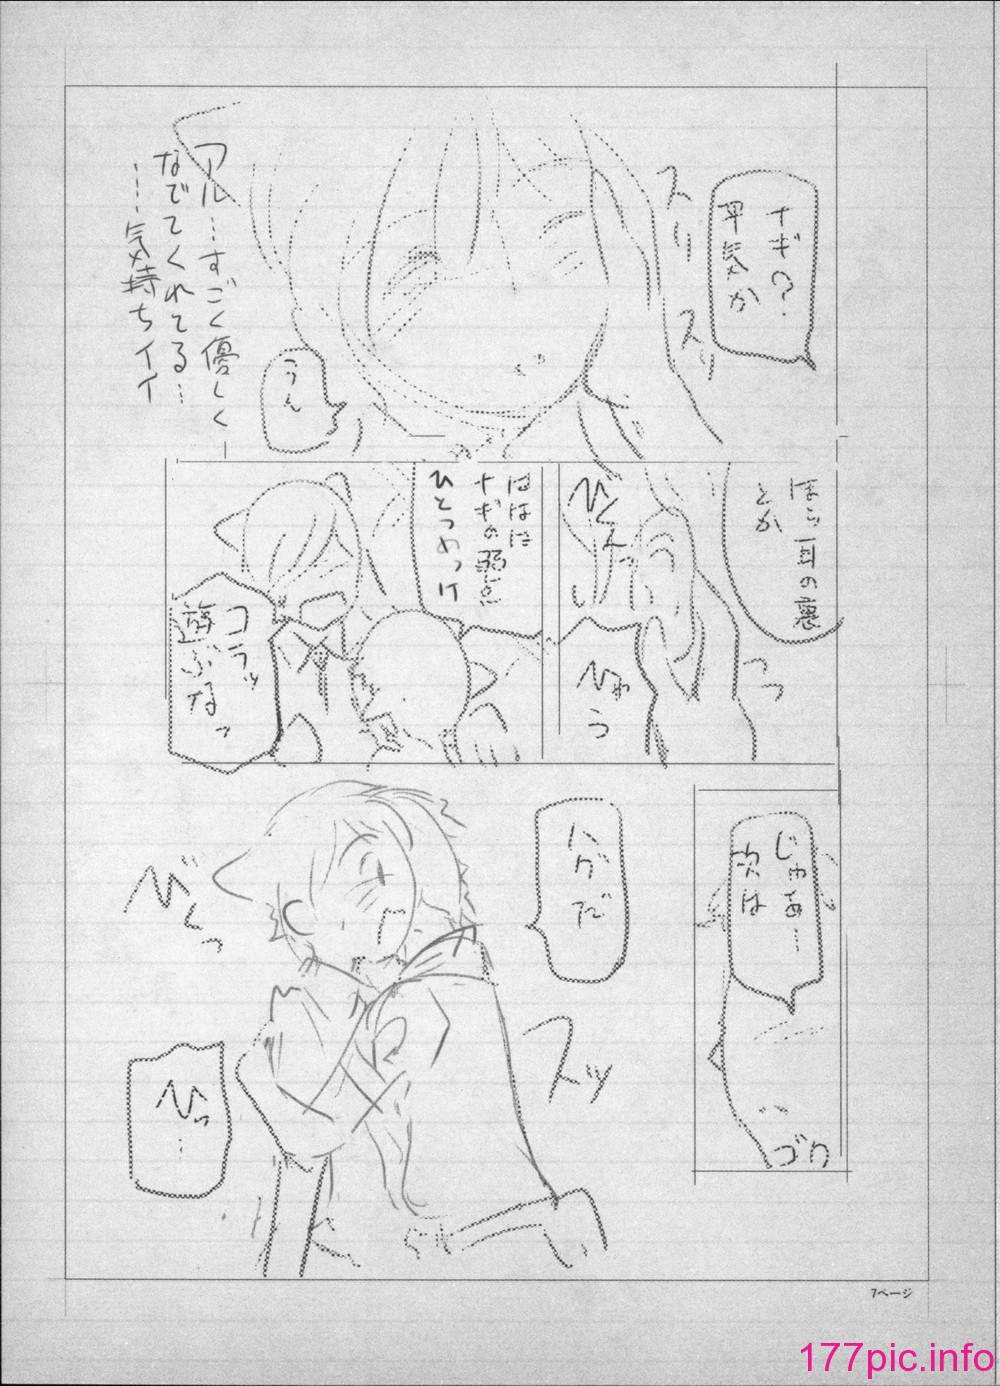 ナギ?
平気か
スリ
スリ
うん
アル…すごく優しく
なでてくれてる…
……気持ちイイ
ほら耳の裏
とか
びくんっ
ひゅう
ははは
ナギの弱点
ひとつめっけ
コラッ
遊ぶなっ
じゃあ…
次は
ゴク
ハグだ
スッ
びくっ
ひっ…
7ページ
177pic.info